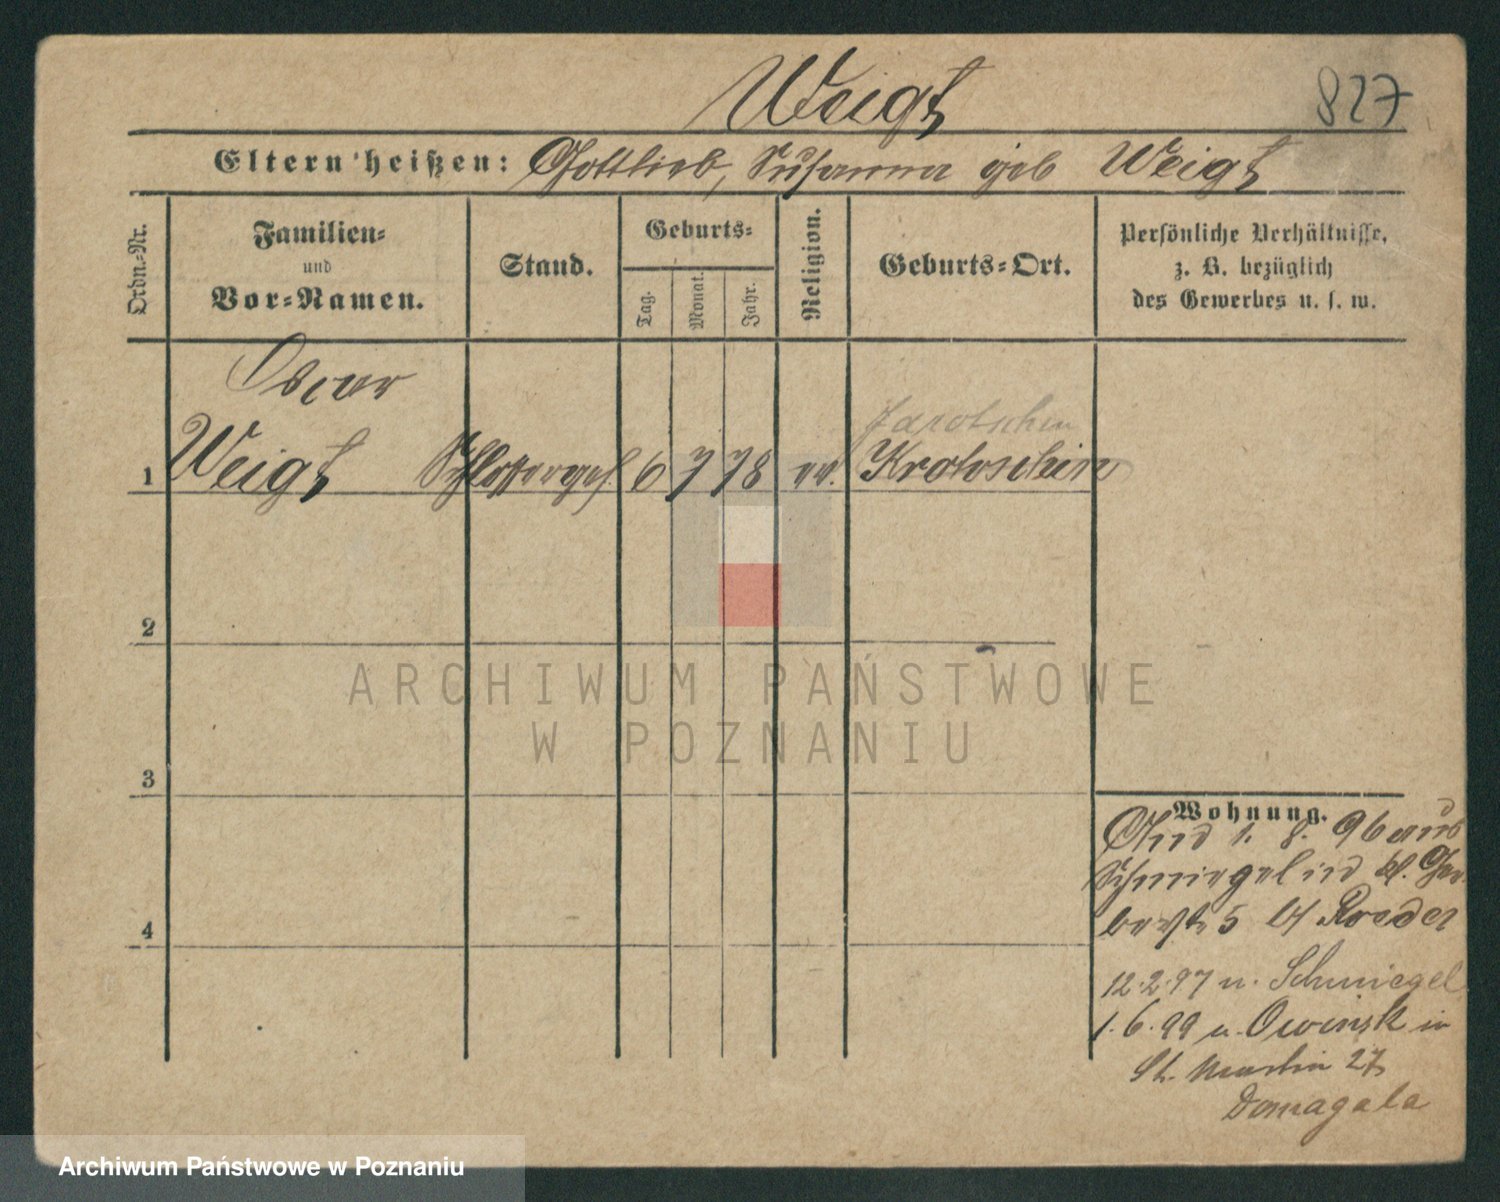 Weigt
827
Eltern heißen: Gottlieb, Susanna geb Weigt
Ordn.-Nr.
Familien-
und
Vor-Namen.
Stand.
Geburts-
Tag.
Monat.
Jahr.
Religion.
Geburts-Ort.
Persönliche Verhältnisse,
z. B. bezüglich
des Gewerbes u. s. w.
Oscar
Jarotschin
1 Weigt Schlosserges. 6 7 78 ev. Krotoschin
2
3
4
Wohnung.
1. 8. 96 aus
Schmiegel in kl. Ger-
berstr 5 bei Roeder
12.2.97 n. Schmiegel
1.6.99 u. Owinsk in
St. Martin 27
Domagala
ARCHIWUM PAŃSTWOWE
W POZNANIU
Archiwum Państwowe w Poznaniu